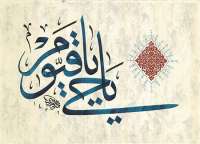 يا حي يا قيوم